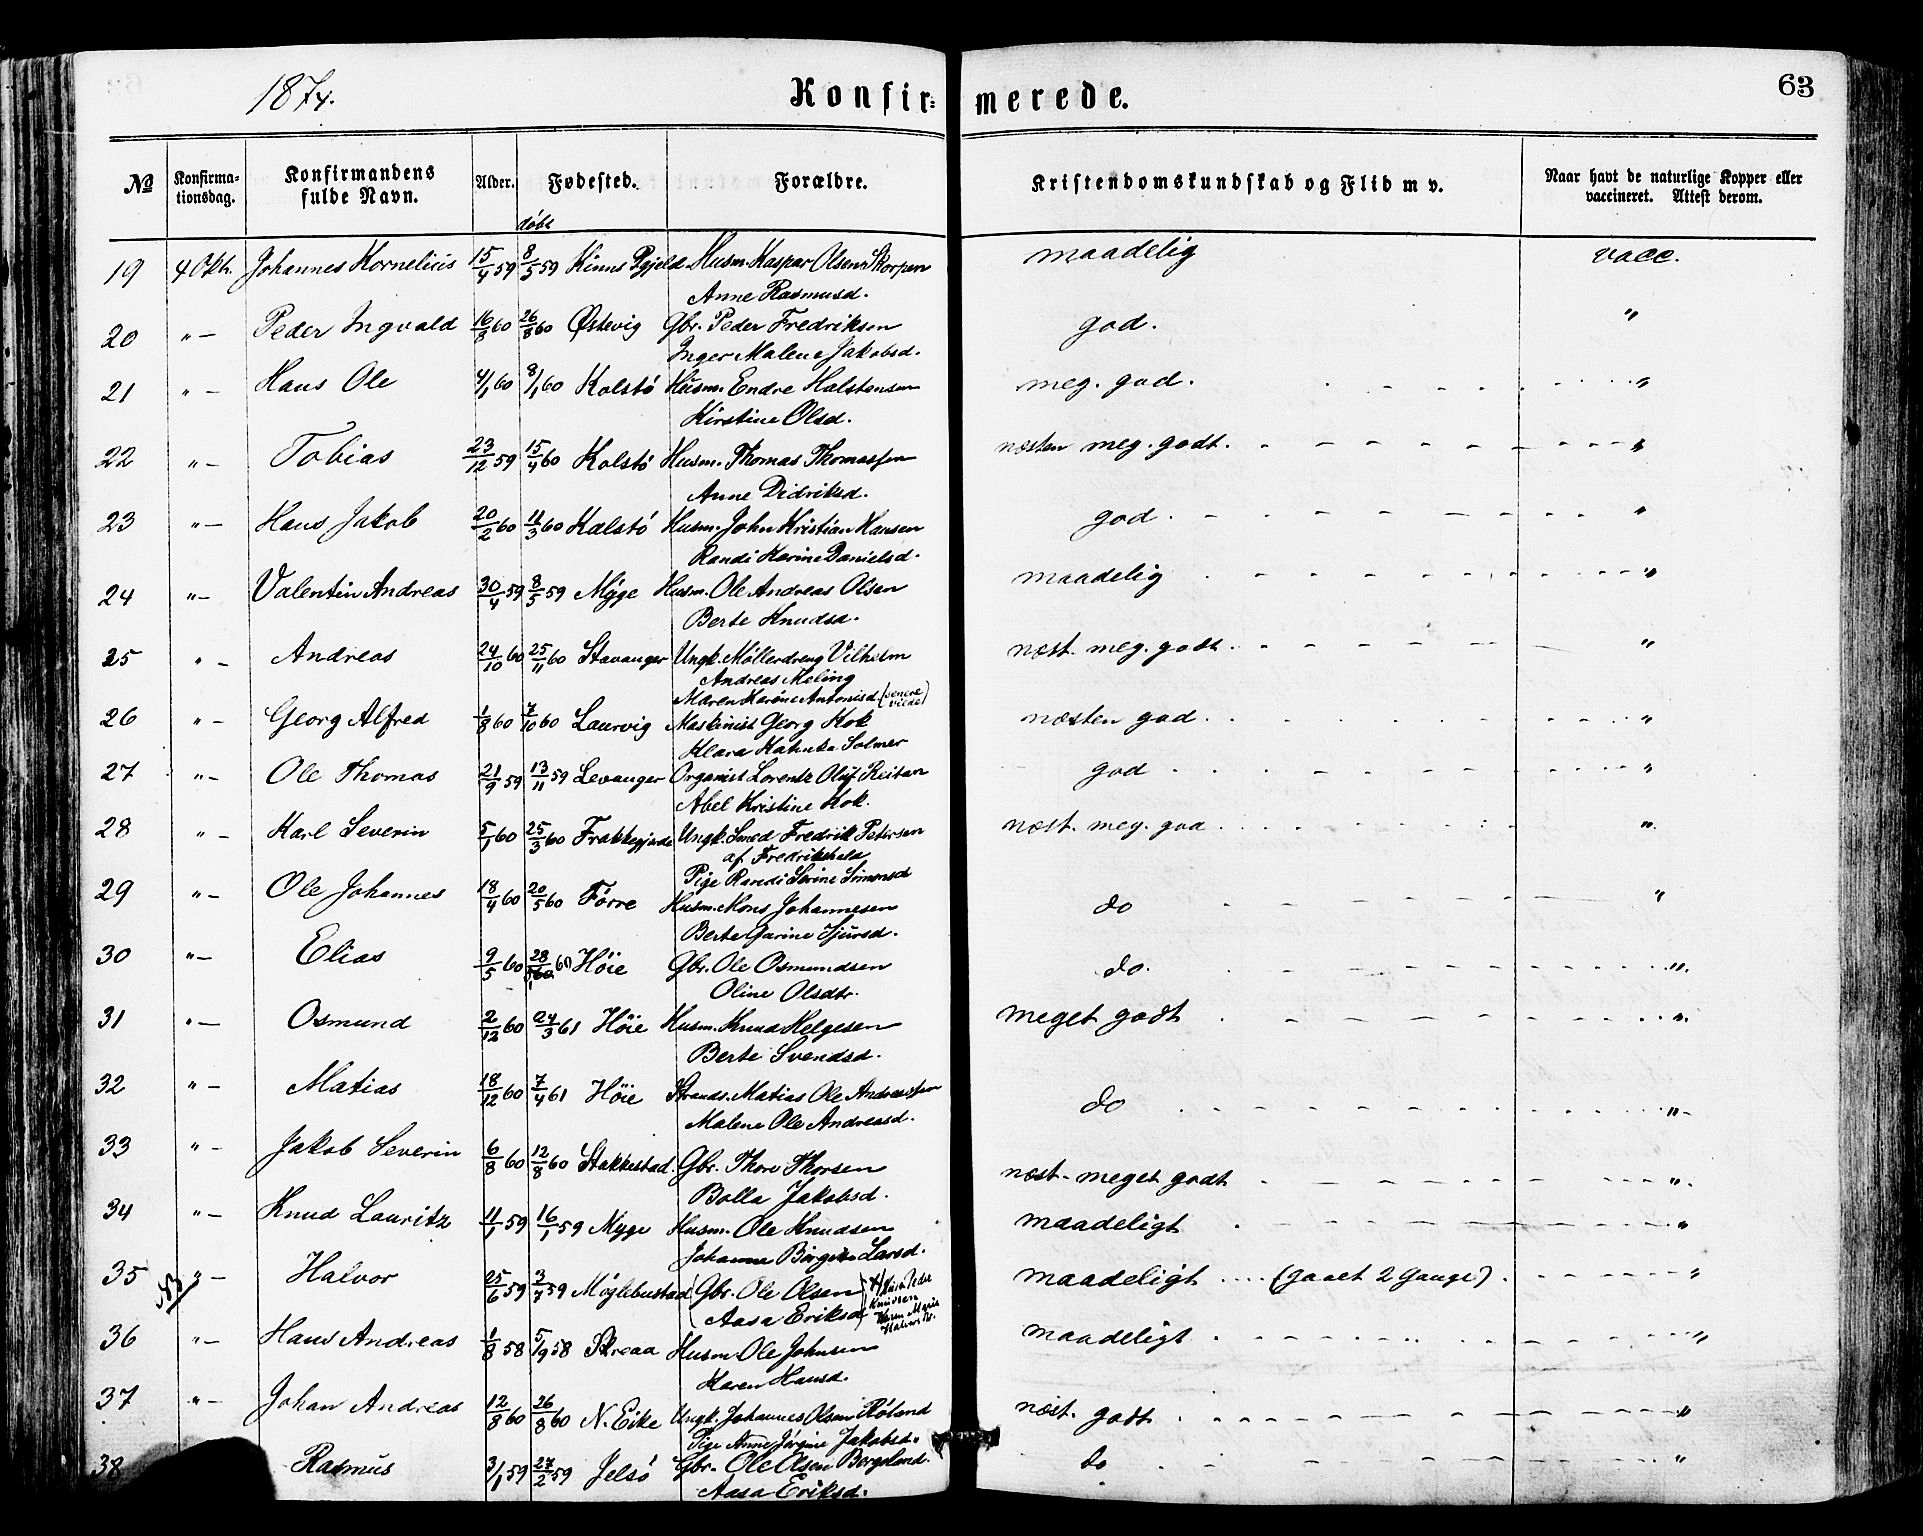 1874.
Konfir=merede.
63
No
Konfirmationsdag.
Konfirmandens fulde Navn.
Alder.
Fødested.
Forældre.
Kristendomskundskab og Flid m v.
Naar havt de naturlige Kopper eller vaccineret. Attest derom.
døbt
19 4 Okt. Johannes Kornelius 15/4 59 8/5 59 Kinns Pgjeld Husm. Kaspar Olsen Skorpen maadelig vacc.
Anne Rasmusd.
20 " — Peder Ingvald 16/8 60 26/8 60 Østevig Gbr. Peder Fredriksen god. "
Inger Malene Jakobsd.
21 " — Hans Ole 4/1 60 8/1 60 Kolstö Husm. Endre Halstensen meg. god. "
Kirstine Olsd.
22 " — Tobias 23/12 59 15/4 60 Kolstö Husm. Thomas Thomassen næsten meg. godt. "
Anne Didriksd.
23 " — Hans Jakob 20/2 60 11/3 60 Kalstö Husm. John Kristian Hansen god. "
Randi Karine Danielsd.
24 " — Valentin Andreas 30/4 59 8/5 59 Myge Husm. Ole Andreas Olsen maadelig "
Berte Knudsd.
25 " — Andreas 24/10 60 25/11 60 Stavanger Ungk. Møllerdreng Vilhelm næst. meg. godt. "
Andreas Meling
Maren Karine Antonisd. (senere viede)
26 " — Georg Alfred 1/8 60 7/10 60 Laurvig Maskinist Georg Kok næsten god. "
Klara Solmer
27 " — Ole Thomas 21/9 59 13/11 59 Levanger Organist Lorentz Oluf Reitan god "
Abel Kristine Kok.
28 " — Karl Severin 5/1 60 25/3 60 Frakkagjerde Ungk. Smed Fredrik Petersen næst. meg. god "
af Fredrikshald
Pige Randi Serine Simonsd
29 " — Ole Johannes 18/4 60 20/5 60 Førre Husm. Mons Johannesen do "
Berte Garine Sjursd.
30 " — Elias 9/5 60 28/ 60 Höie Gbr. Ole Osmundsen do. "
Oline Olsdtr.
31 " — Osmund 2/12 60 24/3 61 Höie Husm. Knud Helgesen meget godt "
Berte Svendsd.
32 " — Matias 18/12 60 7/4 61 Höie Strands. Matias Ole Andreassen do "
Malene Ole Andreasd.
33 " — Jakob Severin 6/8 60 12/8 60 Stakkestad. Gbr. Thore Thorsen næst. meget godt "
Bolla Jakobsd.
34 " — Knud Lauritz 11/1 59 16/1 59 Myge Husm. Ole Knudsen maadeligt "
Johanne Birgitte Larsd.
35 NB " — Halvor 25/6 59 3/7 59 Møglebustad (Gbr. Ole Olsen maadeligt .... (gaaet 2 Gange). "
Aasa Eriksd)
Peder
Knudsen
Karen Marie
36 " — Hans Andreas 1/8 58 5/9 58 Skreaa Husm. Ole Johnsen maadeligt "
Karen Hansd.
37 " — Johan Andreas 12/8 60 26/8 60 N. Eike Ungk. Johannes Olsen Røland næst. godt "
Pige Anne Jörgine Jakobsd.
38 Rasmus 3/1 59 27/2 59 Jelsö Gbr. Ole Olsen Borgeland. do "
Aasa Eriksd.